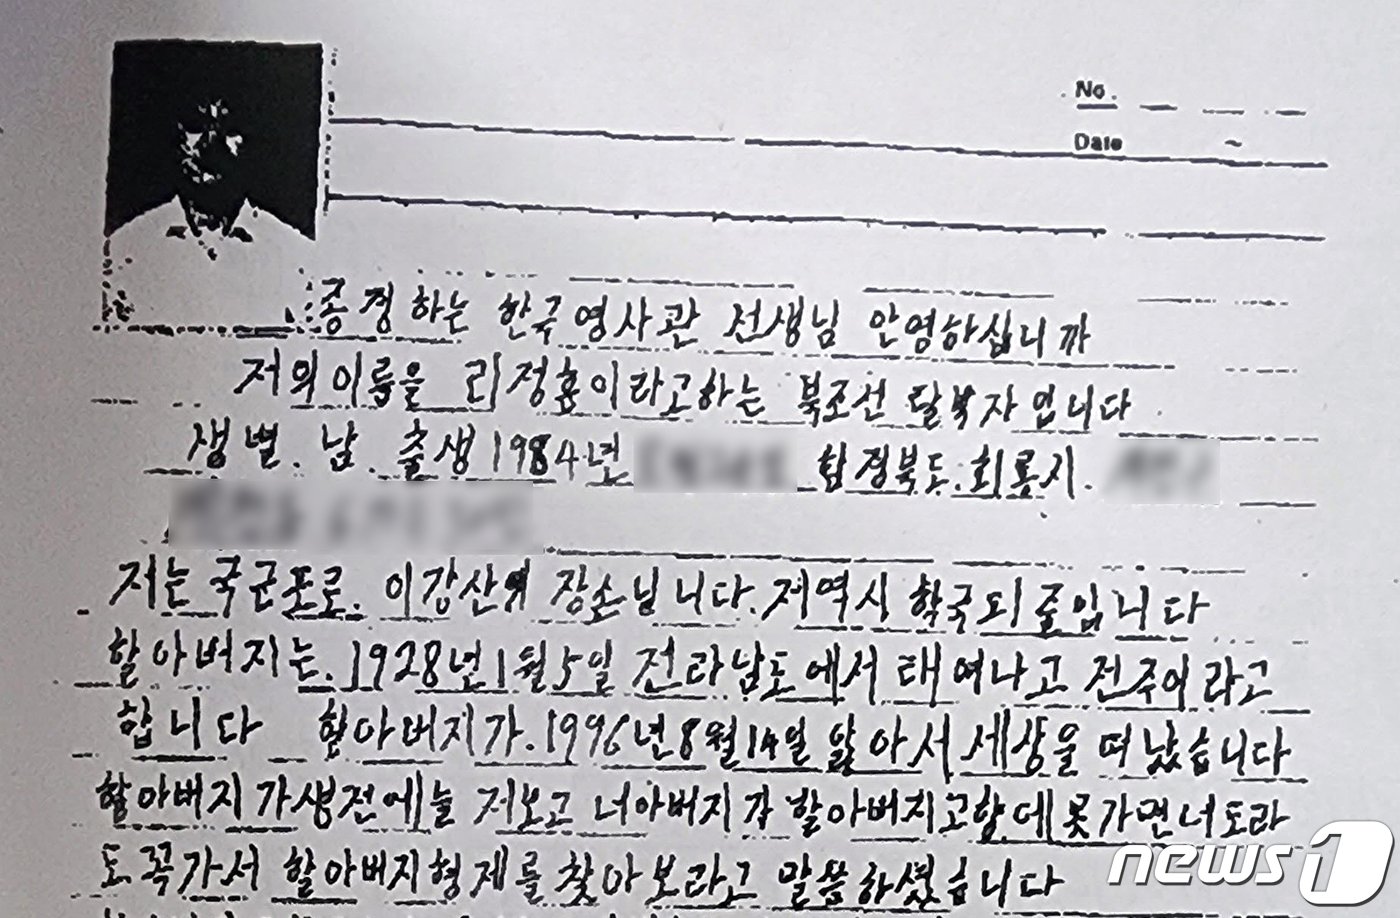 No.
Date
존경하는 한국영사관 선생님 안영하십니까
저의이름을 리정흠이라고하는 북조선 탈북자입니다
생별. 남. 출생1984년 함경북도.회룡시.
저는 국군포로. 이갑산의 장손님니다. 저역시 한국되줄입니다
할아버지는. 1928년1월5일 전라남도에서 태여나고 전주이라고
합니다 할아버지가. 1996년8월14일 앓아서 세상을 떠났습니다
할아버지가생전에늘 저보고 너아버지가 할아버지고향에못가면너도라
도꼭가서 할아버지형제를 찾아보라고 말씀하셨습니다
news1